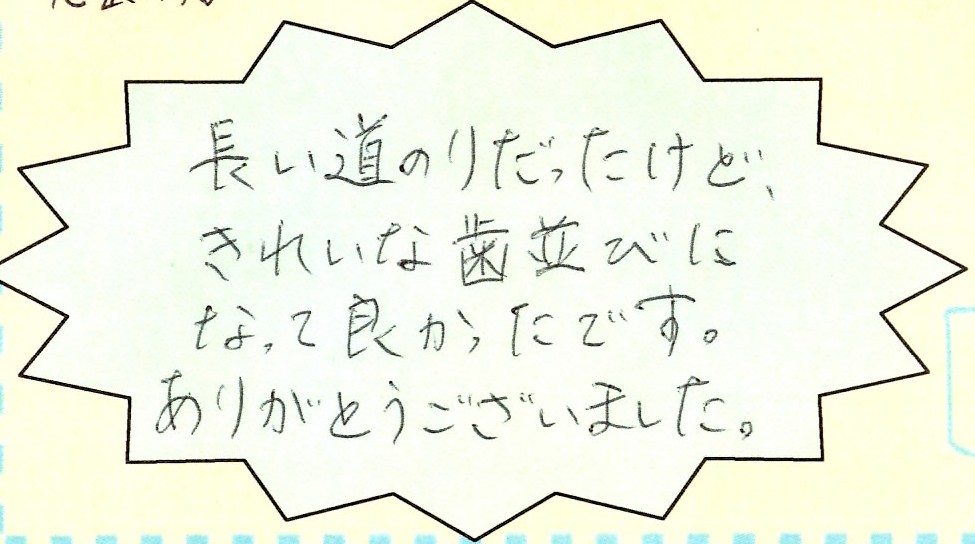 長い道のりだったけど、
きれいな歯並びに
なって良かったです。
ありがとうございました。